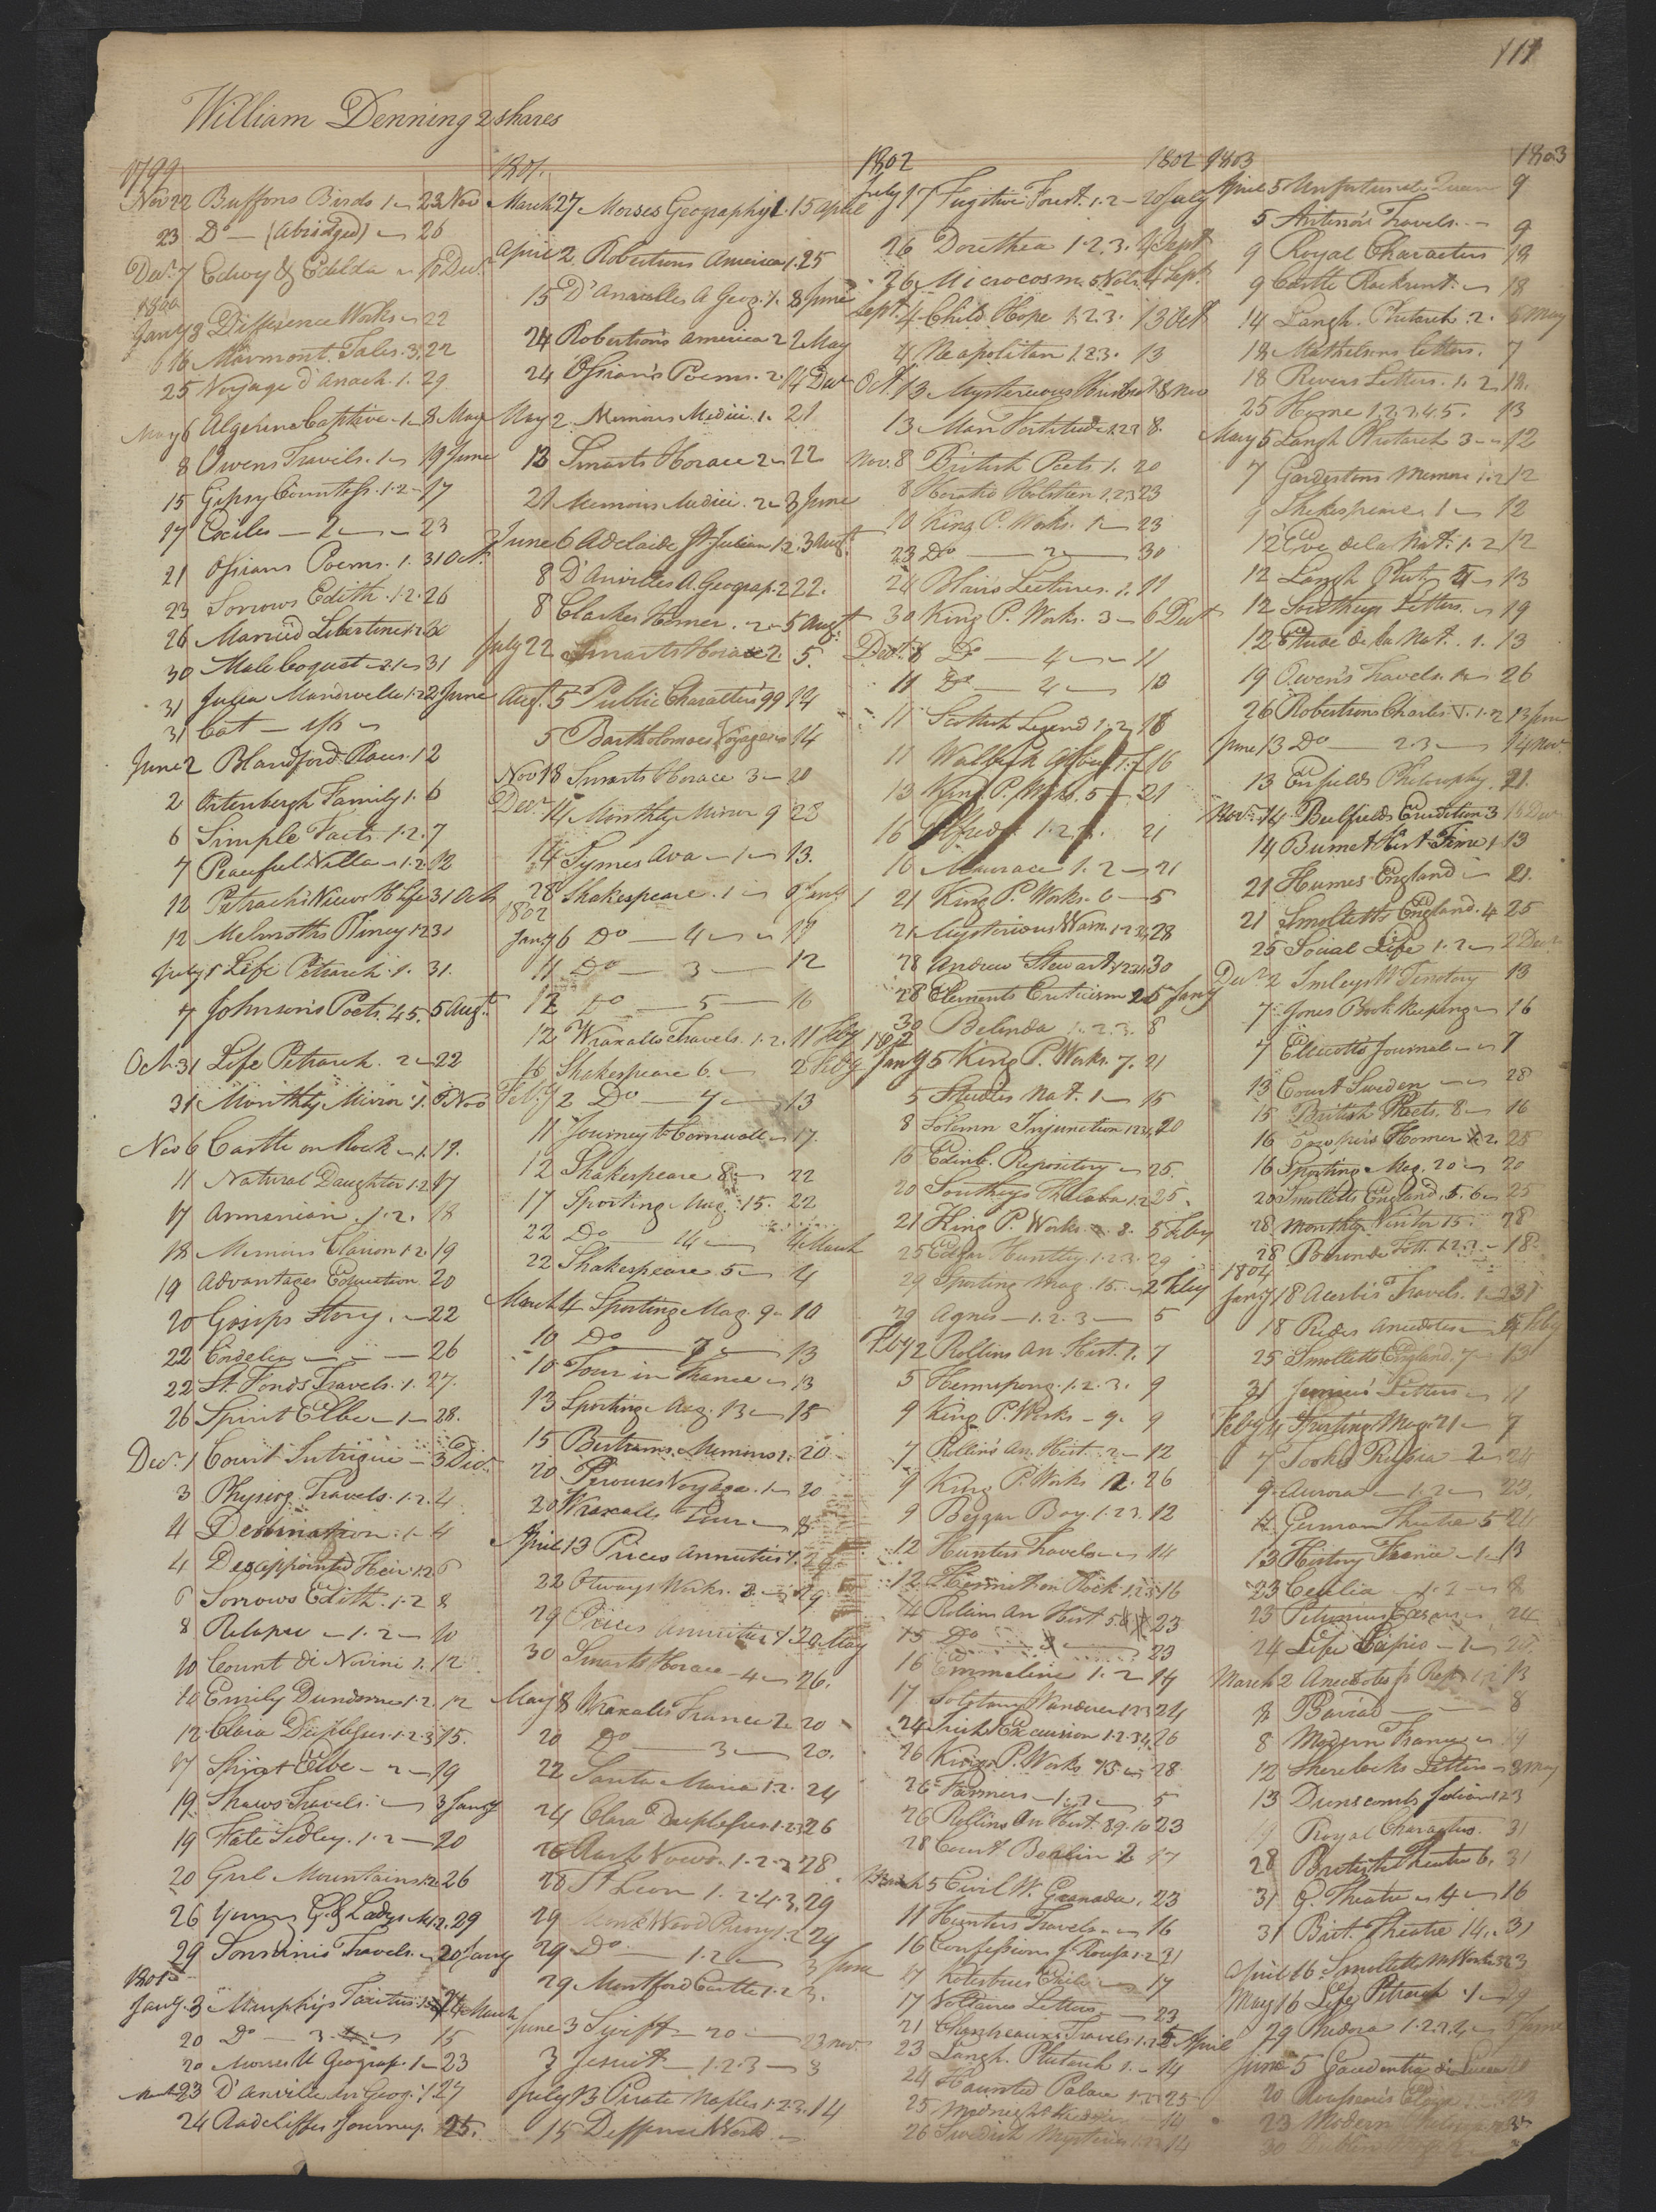 111
William Denning 2 shares
1799
Nov 22 Buffons Birds 1 23 Nov
23 Do (Abridged) 26
Decr. 7 Edwy & Edilda 10 Decr.
1800
Jany 8 Difference Works 22
16 Marmont. Tales. 3. 22
25 Voyage d'Anach. 1. 29
May 6 Algerine Captive 1 8 May
8 Owens Travels. 1 19 June
15 Gipsy Countess. 1.2 17
17 Exiles 2 23
21 Ossians Poems. 1. 31 Oct.
23 Sorrows Edith. 1.2. 26
26 Married Libertine 1.2
30 Male Coquet 31
31 Julia Mandville 1.2 2 June
31 Cat
June 2 Blandford Races. 12
2 Ortenbergh Family 1. 6
6 Simple Facts 1.2. 7
7 Peaceful Villa 1.2. 12
12 Petrach's View H Life 31 Oct
12 Melmoths Pliney 1.2 31
July 1 Life Petrarch. 1. 31.
7 Johnson's Poets. 45. 5 Augt.
Oct. 31 Life Petrarch. 2 22
31 Monthly Mirror 1. Nov
Nov 6 Castle on Rock 1. 19.
11 Natural Daughter 1.2 17
17 Armenian. 1.2. 18
18 Memoirs Clarion 1.2 19
19 Advantages Education 20
20 Gosips Story. 22
22 Cordelia 26
22 St. Fonds Travels. 1. 27.
26 Spirit Elbe 1 28.
Decr. 1 Count Intrigue 3 Decr.
3 Physiog. Travels. 1.2. 4
4 Destination. 1 4
4 Disappointed Heir 1.2 6
6 Sorrows Edith. 1.2 8
8 Relapse 1.2 10
10 Count di Novini 1. 12
10 Emily Dundorne 1.2. 12
12 Clara Duplesses. 1.2.3 15.
17 Spirit Elbe 2 19
19 Shaws Travels. 3 Jany
19 Fate Sedley. 1.2 20
20 Girl Mountains 1.2 26
26 Young G. & Ladys M 1.2. 29
29 Sonninis Travels. 20 Jany
1801
Jany. 3 Murphys Tacitus. 24 March
20 Do 3 15
20 Morses U Geograp. 1 23
23 D'Anville An Geog. 1 27
24 Radcliffes Journey. 25.
1801.
March 27 Morses Geography 1. 15 April
April 2 Robertsons America 1. 25
15 D'Anvilles A Geog. 1. 8 June
24 Robertson's America 2 2 May
24 Ossian's Poems. 2. 14 Decr
May 2 Memoirs Medici. 1. 21
13 Smarts Horace 2 22
21 Memoirs Medici. 2 3 June
June 6 Adelaide St. Julian 1.2. 3 Augt.
8 D'Anvilles A. Geograp. 2 22.
8 Clarkes Homer. 2 5 Augt.
July 22 Smarts Horace 2. 5.
Augt. 5 Public Characters 99 14
5 Bartholomaes Voyages 14
Nov 18 Smarts Horace 3 20
Decr. 14 Monthly Mirror 9 28
14 Symes Ava 1 13.
28 Shakespeare. 1 Jany
1802
Jany 6 Do 4
11 Do 3 12
12 Do 5 16
12 Wraxalls Travels. 1.2. 11 Feby
16 Shakespeare 6. 2 Feby
Feby 2 Do 7 13
11 Journey to Cornwall 17.
12 Shakespeare 8 22
17 Sporting Mag. 15. 22
22 Do 14 4 March
22 Shakespeare 5 4
March 4 Sporting Mag. 9 10
10 Do 7 13
10 Tour in France 13
13 Sporting Mag. 13 15
15 Bertrams Memoirs 20
20 Perouses Voyage. 1 20
20 Wraxalls Tour 8
April 13 Prices Annuities 1. 29
22 Otways Works. 29
29 Prices Annuities 1. 20 May
30 Smarts Horace 4 26.
May 8 Wraxalls France 2 20
20 Do 3 20.
22 Santa Maria 1.2. 24
24 Clara Duplesses. 1.2.3 26
26 Rash Vows. 1.2.3 28
28 St Leon 1.2.4.3. 29
29
29 Do 1.2 3 June
29 Montford Castle 1.2 3.
June 3 Swift 20 23 nov.
3 Jesuit 1.2.3 8
July 13 Pirate Naples 1.2.3. 14
15 Difference World
1802 1802
July 17 Fugitive Forest. 1.2 20 July
26 Dorothea 1.2.3. 4 Sept
26 Microcosm 5 Vols. 4 Sept.
Sept. 4 Child Hope 1.2.3. 13 Oct
4 Neapolitan 1.2.3. 13
Oct. 13 Mysterious Husband 8 Nov
13 Man Fortitude 1.2.3 8.
Nov. 8 British Poets 1. 20
8 Horatio Holstien 1.2.3 23
10 King P. Works. 1 23
23 Do 2 30
24 Blair's Lectures. 1. 11
30 King P. Works. 3 6 Dect
Decr. 6 Do 4 11
11 Do 4 13
11 Scottish Legend 1.2 18
11 16
13 King P. Works. 5 21
16 Alfred 1.2.3. 21
16 1.2 21
21 King P. Works. 6 5
21 Mysterious Warn. 1.2.3. 28
28 Andrew Stewart 1.2.3. 30
28 Elements Criticism 2 5 Jany
30 Belinda 1.2.3. 8
Jany 5 King P. Works. 7. 21
5 Studies Nat. 1 15
8 Solemn Injunction 1.2.3.4. 20
15 Edinb. Repository 25.
20 Southeys Thalaba 1.2 25.
21 King P. Works. 8. 5 Feby
25 Edgar Huntly 1.2.3. 29
29 Sporting Mag. 15. 2 Feby
29 Agnes 1.2.3 5
Feby 2 Rollins An. Hist. 1. 7
5 Hermsprong. 1.2.3. 9
9 King P. Works 9. 9
7 Rollins An. Hist. 2 12
9 King P. Works 12. 26
9 Beggar Boy 1.2.3. 12
12 Hunters Travels 14
12 Hermit on Rock 1.2.3 16
14 Rollins An Hist 5. 23
15 Do 23
16 Emmeline 1.2 19
17 Solitary Wanderer 1.2.3 24
24 Irish Excursion 1.2.3.4. 26
26 Kings P. Works 15 28
26 Farmers 5
26 Rollins An Hist. 8.9.10 23
28 Court Berlin 2 17
March 5 Civil W. Granada. 23
11 Hunters Travels 16
16 Confessions J. Rouss 1.2 21
17 Kotzebues Exile 17
17 Voltaires Letters 23
21 Travels. 1.2 5 April
23 Langh. Plutarch 1. 14
24 Haunted Palace 25
25 Midnight 14
26 Swedish Mysteries 1.2.3 14
1803 1803
April 5 Unfortunate Queen 9
5 Antenors Travels. 9
9 Royal Characters 18
9 Castle Rackrent. 18
14 Langh. Plutarch. 2. 5 May
18 Mathesons letters. 7
18 Rivers Letters. 1.2 18.
25 Hume 1.2.3.4.5. 13
May 5 Langh Plutarch 3 12
7 Gardestons Memoirs 1.2 12
9 Shakespeare. 1 12
12 Etu. de la Nat. 1.2 12
12 Langh Plut. 13
12 Southeys Letters. 19
12 Etude de la Nat. 1. 13
19 Owen's Travels. 26
26 Robertsons Charles V. 1.2 13 June
June 13 Do 2.3 14 Nov
13 Enfields Philosophy. 21.
Nov. 14 Beilfields Erudition 3 Dec
14 Burnet Hist Time 1 13
21 Humes England 21.
21 Smolletts England. 4 25
25 Social Life 1.2 2 Decr
Decr 2 Imleys W Teritory 13
7 Jones Book keeping 16
7 Ellicotts Journal 7
13 Court Sweden 28
15 British Poets. 8 16
16 Homer 2. 25
16 Sporting Mag. 20 20
20 Smolletts England. 5.6 25
28 Monthly Visitor 15. 28
28 18
1804
Jany 18 Acerbi's Travels. 1
18 Anecdotes Feby
25 Smolletts England. 7 13
31 Junius's Letters 11
Feby 4 Sporting Mag. 21 7
7 Tooke Russia 2 24
9 Aurora 1.2 23.
German Theatre 5 24
13 History France 1 13
23 Cecilia 1.2 8
23 24
24 Life Scipio
March 2 Anecdotes 13
8
8 Modern France
12 Sherlocks Letters 3 May
13 Dunscomb Julian 23
Royal Characters. 31
28 British Theatre 6. 31
31 G. Theatre 4 16
31 Brit. Theatre 14. 31
April 16 Smolletts M Works 23
May 16 Life Petrarch 1
29 Phedora 1.2.3.4 5 June
June 5 Gaudentia di Lucca
20
23 Modern
30